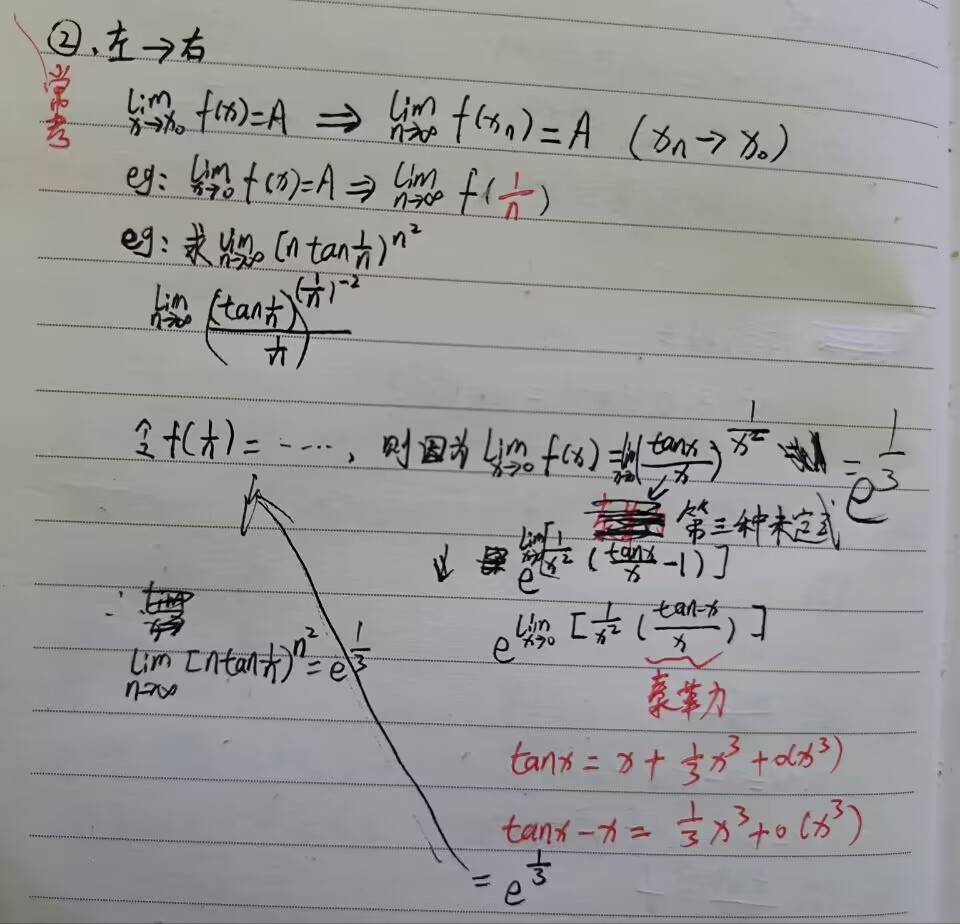 ②、左→右
常考
lim x→x₀ f(x)=A ⟹ lim n→∞ f(xₙ)=A (xₙ→x₀)
eg: lim x→0 f(x)=A ⟹ lim n→∞ f(1/n)
eg: 求 lim n→∞ [n tan 1/n)^n²
lim n→∞ (tan 1/n / 1/n)^(1/n)^-2
令 f(1/n) = ……, 则因为 lim x→0 f(x) = lim x→0 (tanx/x)^1/x² = e^1/3
第三种未定式
e^lim x→0 [1/x² (tanx/x -1)]
e^lim x→0 [1/x² (tan-x/x)]
∴
lim n→∞ [n tan 1/n)^n² = e^1/3
泰勒
tanx = x + 1/3 x³ + o(x³)
tanx - x = 1/3 x³ + o(x³)
= e^1/3